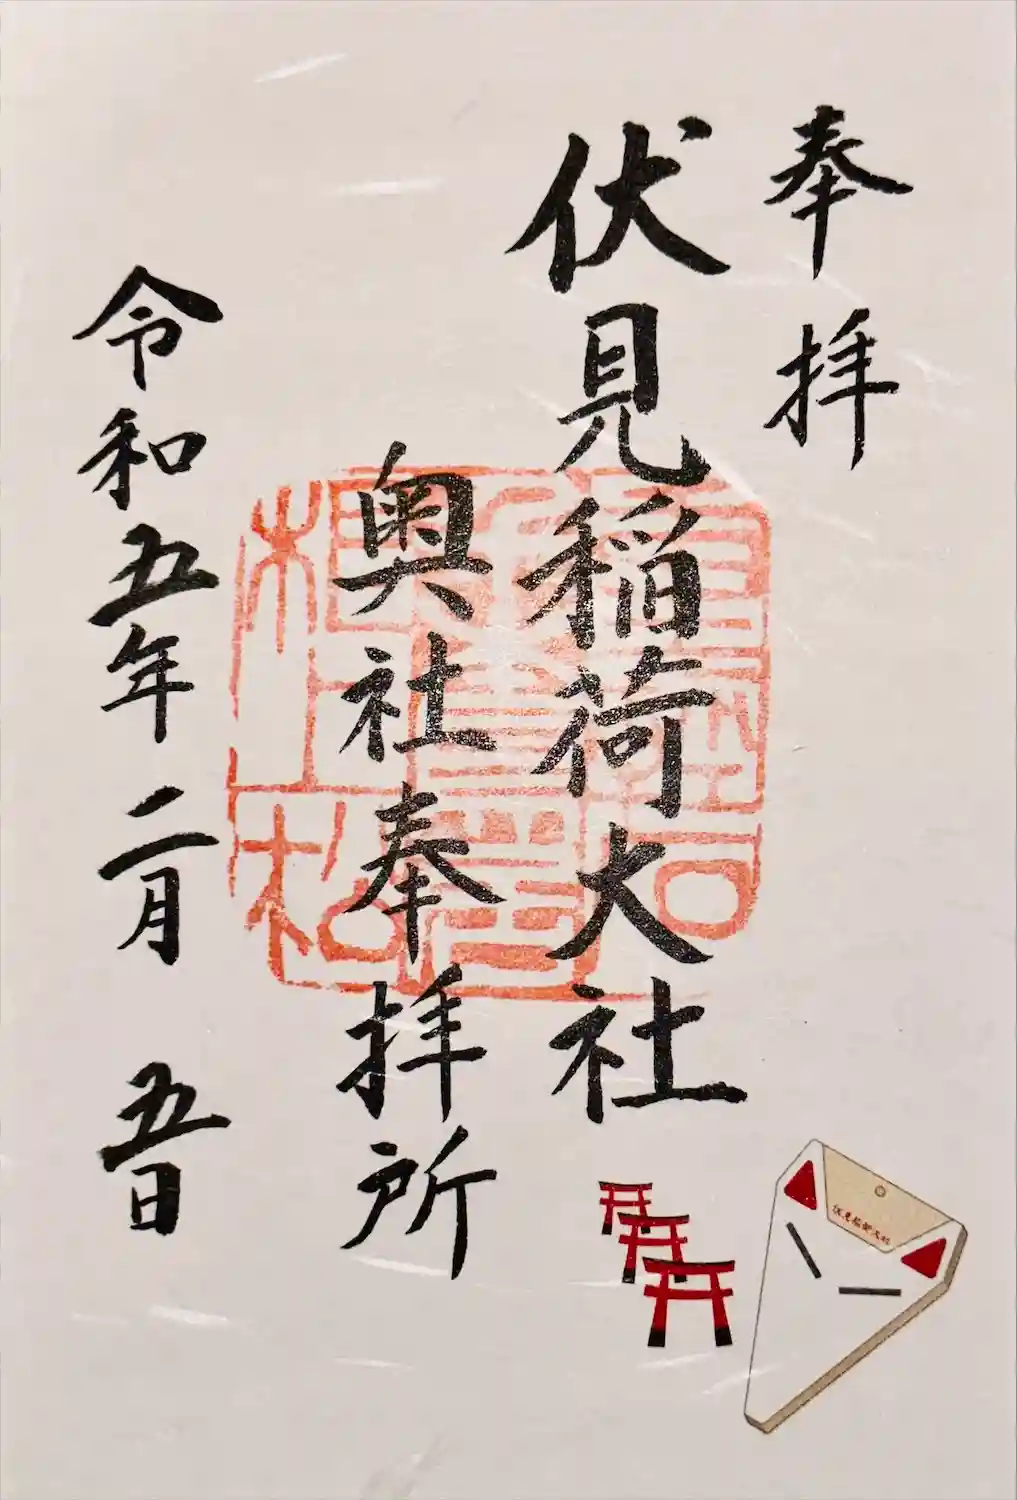 奉拝
伏見稲荷大社
奥社奉拝所
令和五年二月五日
伏見稲荷大社